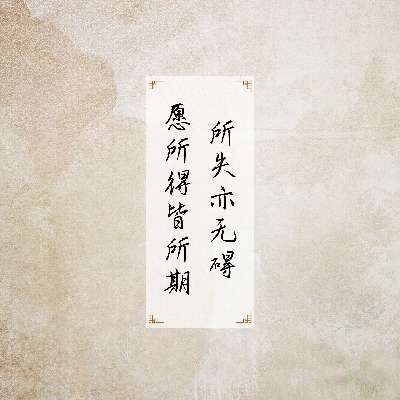 愿所得皆所期
所失亦无碍